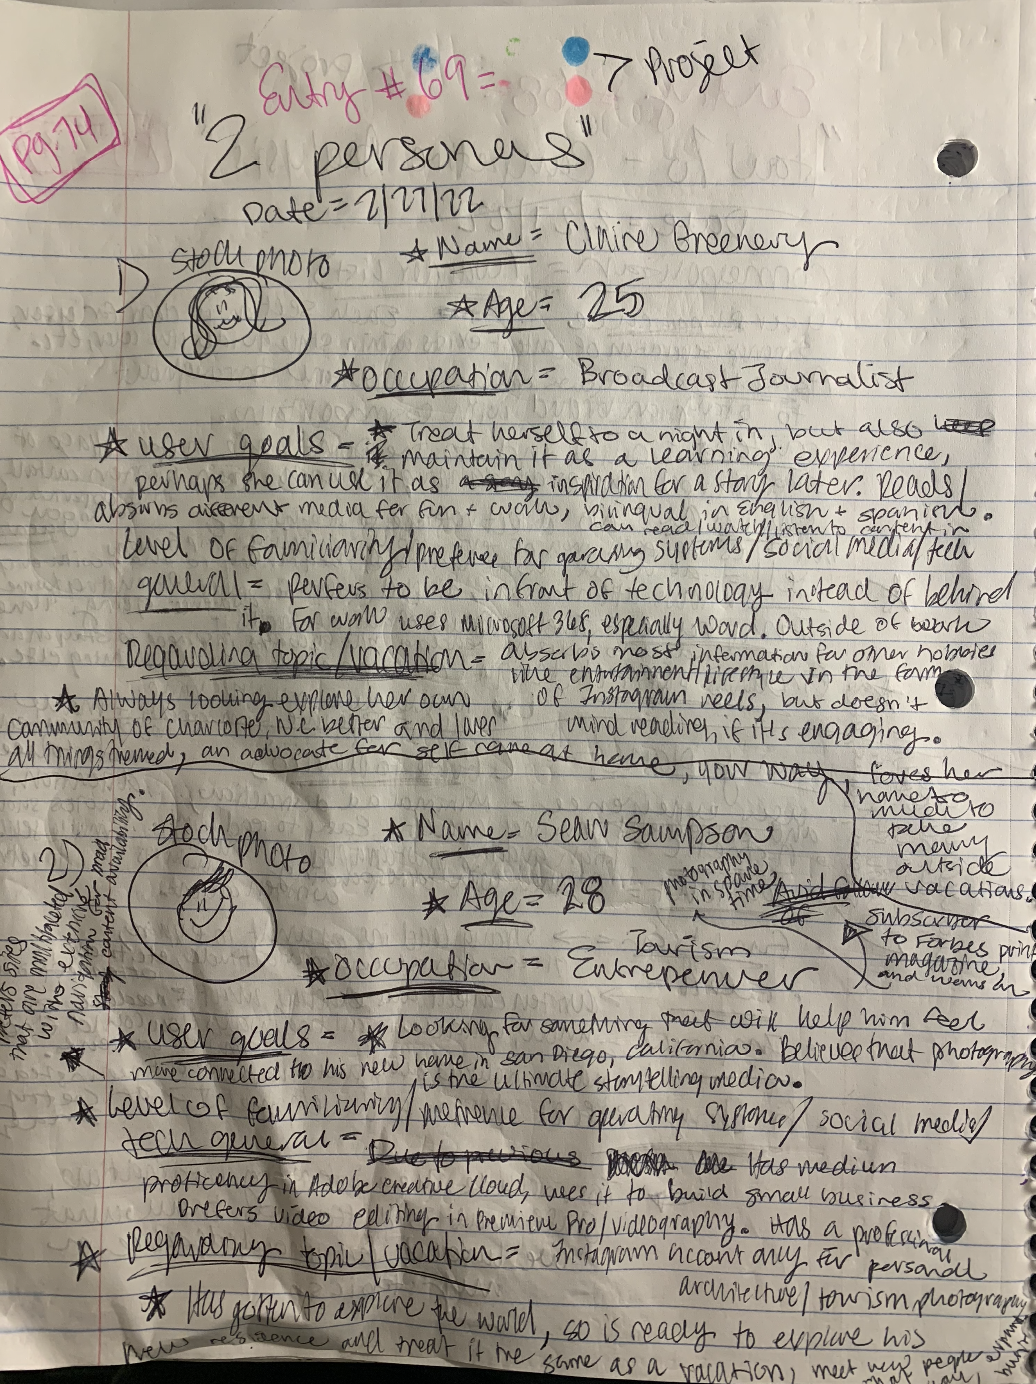 Entry #69= > Project
pg.74
"2 personas"
Date = 2/27/22
1) stock photo
★ Name = Claire Greenery
★ Age = 25
★ occupation = Broadcast Journalist
★ user goals = ★ Treat herself to a night in, but also
maintain it as a learning experience,
perhaps she can use it as inspiration for a story later. Reads/
absorbs different media for fun + work, bilingual in English + spanish.
can read/watch/listen to content in
Level of familiarity/prefence for operating systems/social media/tech
general = perfers to be infront of technology instead of behind
it. For work uses Microsoft 365, especially Word. Outside of work
absorbs most information for other hobbies
like entertainment/lifestyle in the form
of Instagram reels, but doesn't
mind reading, if it's engaging.
Regarding topic/vacation =
★ Always looking explore her own
community of Charlotte, N.C. better and loves
all things themed, an advocate for self care at home, your way, loves her
home to
much to
take
many
outside
vacations.
2) stock photo
★ Name = Sean Sampson
★ Age = 28
★ occupation = Tourism
Entrepenuer
photography
in spare
time
subscriber
to Forbes print
magazine,
and
Prefers sites
that are multifaceted
w/ no extensive
navigation for
content availability.
★ user goals = ★ Looking for something that will help him feel
more connected to his new home in San Diego, California. Believes that photography
is the ultimate storytelling media.
★ Level of familiarity/prefrence for operating systems/social media/
tech general = Due to previous Has medium
proficency in Adobe creative cloud, uses it to build small business.
Prefers video editing in Premiere Pro/videography. Has a professional
Instagram account only for personal
architecture/tourism photography
★ Regarding topic/vacation =
★ Has gotten to explore the world, so is ready to explore his
new residence and treat it the same as a vacation, meet new people